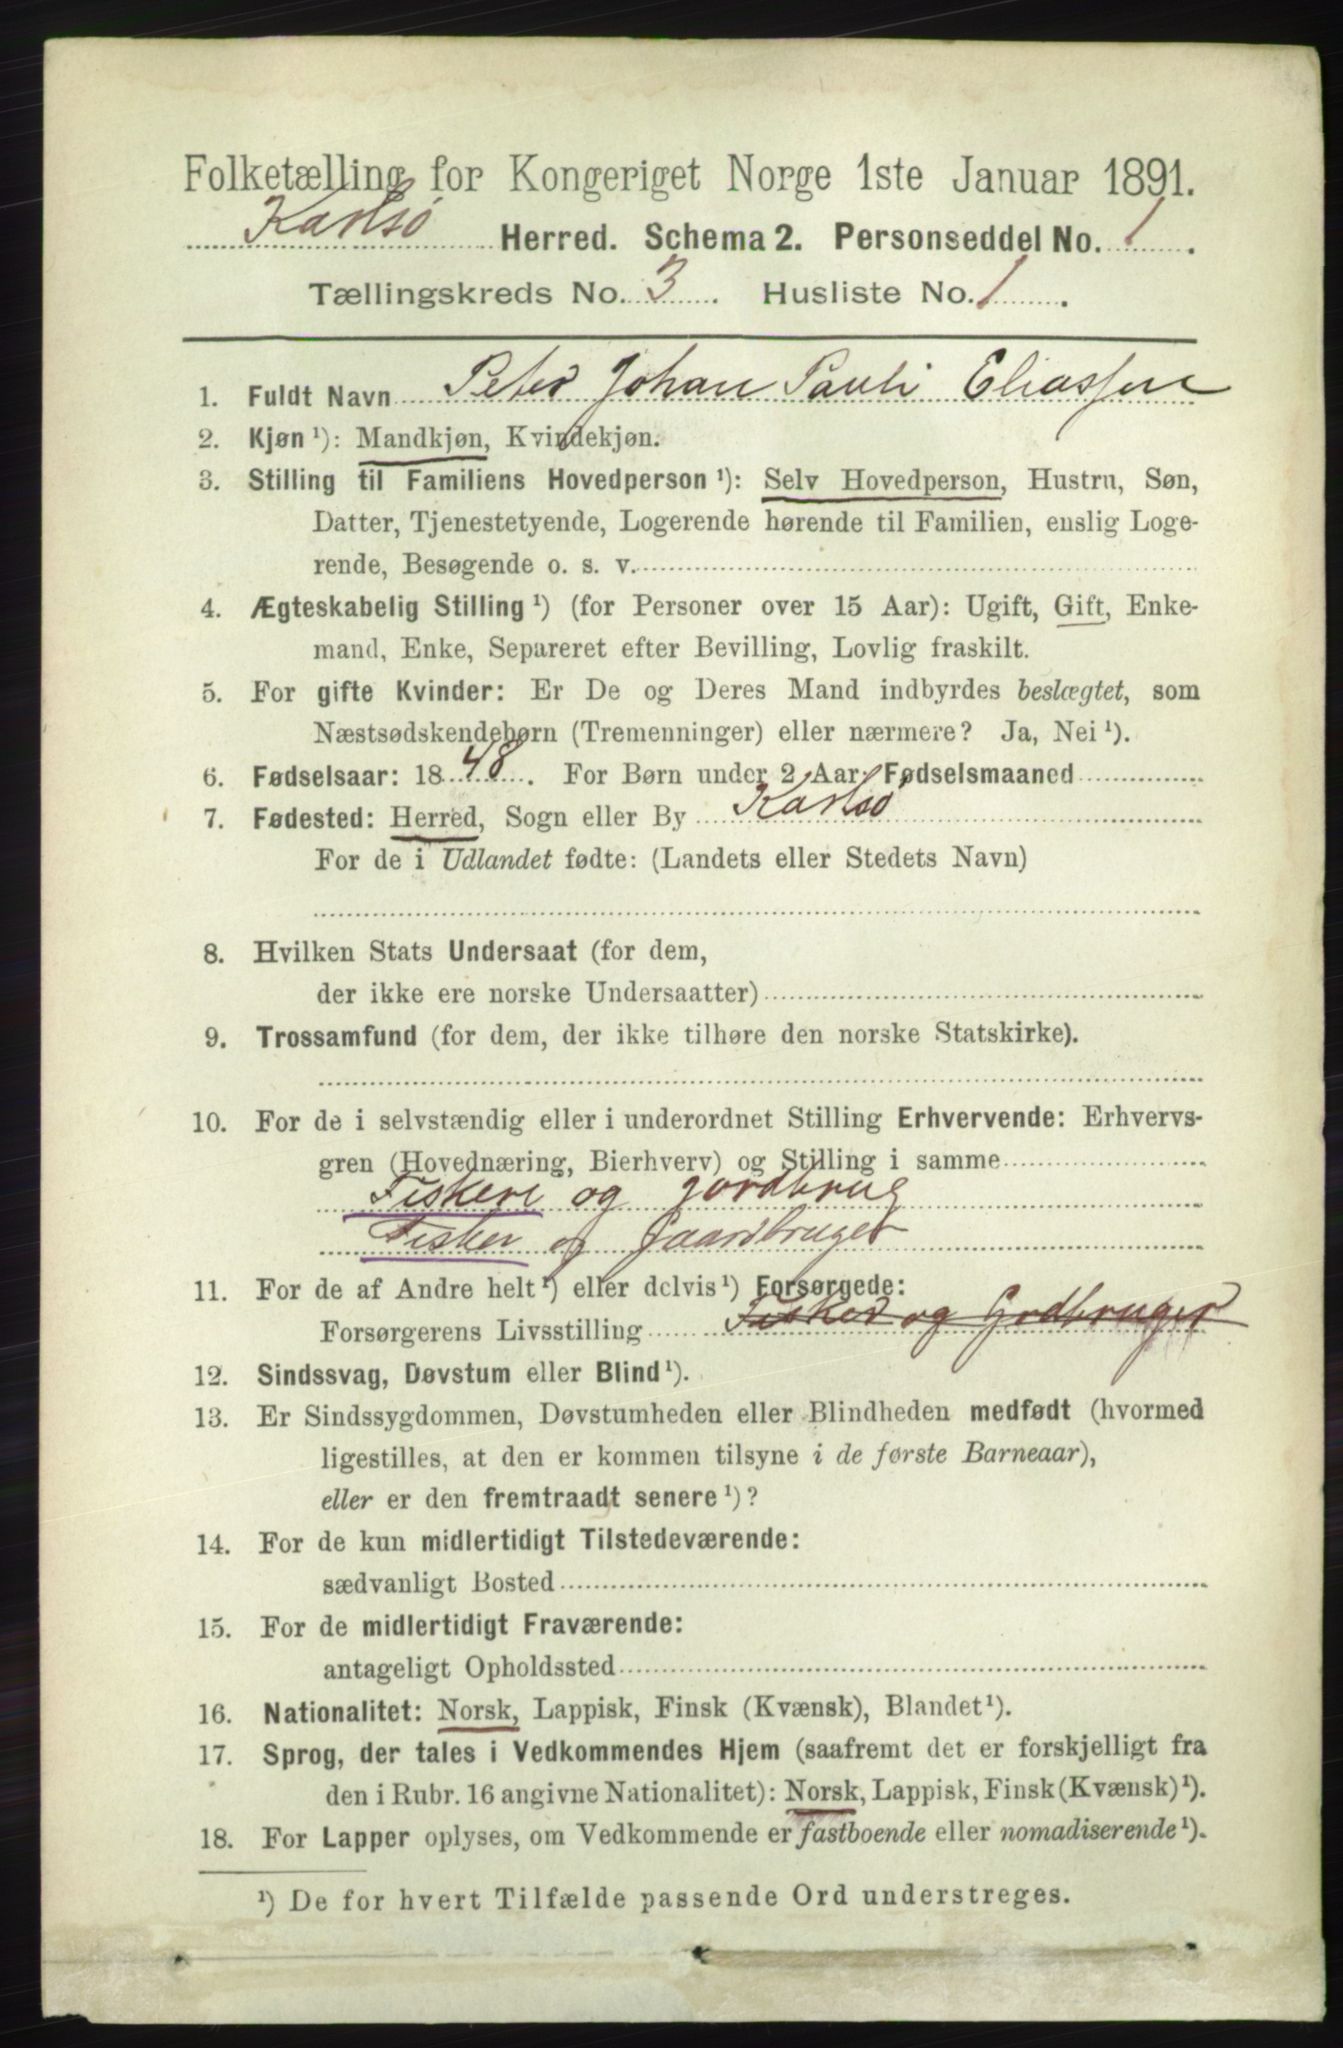 Folketælling for Kongeriget Norge 1ste Januar 1891.
Karlsø Herred. Schema 2. Personseddel No. 1.
Tællingskreds No. 3. Husliste No. 1.
1. Fuldt Navn Peter Johan Pauli Eliassen
2. Kjøn ¹): Mandkjøn, Kvindekjøn.
3. Stilling til Familiens Hovedperson ¹): Selv Hovedperson, Hustru, Søn,
Datter, Tjenestetyende, Logerende hørende til Familien, enslig Loge-
rende, Besøgende o. s. v.
4. Ægteskabelig Stilling ¹) (for Personer over 15 Aar): Ugift, Gift, Enke-
mand, Enke, Separeret efter Bevilling, Lovlig fraskilt.
5. For gifte Kvinder: Er De og Deres Mand indbyrdes beslægtet, som
Næstsødskendebørn (Tremenninger) eller nærmere? Ja, Nei ¹).
6. Fødselsaar: 1848. For Børn under 2 Aar: Fødselsmaaned
7. Fødested: Herred, Sogn eller By Karlsø
For de i Udlandet fødte: (Landets eller Stedets Navn)
8. Hvilken Stats Undersaat (for dem,
der ikke ere norske Undersaatter)
9. Trossamfund (for dem, der ikke tilhøre den norske Statskirke).
10. For de i selvstændig eller i underordnet Stilling Erhvervende: Erhvervs-
gren (Hovednæring, Bierhverv) og Stilling i samme
Fiskeri og jordbrug
Fisker og Gaardbruger
11. For de af Andre helt ¹) eller delvis ¹) Forsørgede:
Forsørgerens Livsstilling Fisker og Grdbruger
12. Sindssvag, Døvstum eller Blind ¹).
13. Er Sindssygdommen, Døvstumheden eller Blindheden medfødt (hvormed
ligestilles, at den er kommen tilsyne i de første Barneaar),
eller er den fremtraadt senere ¹)?
14. For de kun midlertidigt Tilstedeværende:
sædvanligt Bosted
15. For de midlertidigt Fraværende:
antageligt Opholdssted
16. Nationalitet: Norsk, Lappisk, Finsk (Kvænsk), Blandet ¹).
17. Sprog, der tales i Vedkommendes Hjem (saafremt det er forskjelligt fra
den i Rubr. 16 angivne Nationalitet): Norsk, Lappisk, Finsk (Kvænsk) ¹).
18. For Lapper oplyses, om Vedkommende er fastboende eller nomadiserende ¹).
¹) De for hvert Tilfælde passende Ord understreges.